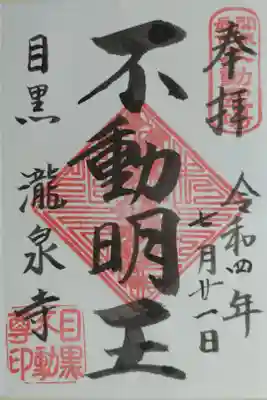 奉拝
令和四年
七月廿一日
不動明王
目黒 瀧泉寺
目黒
不動
尊印